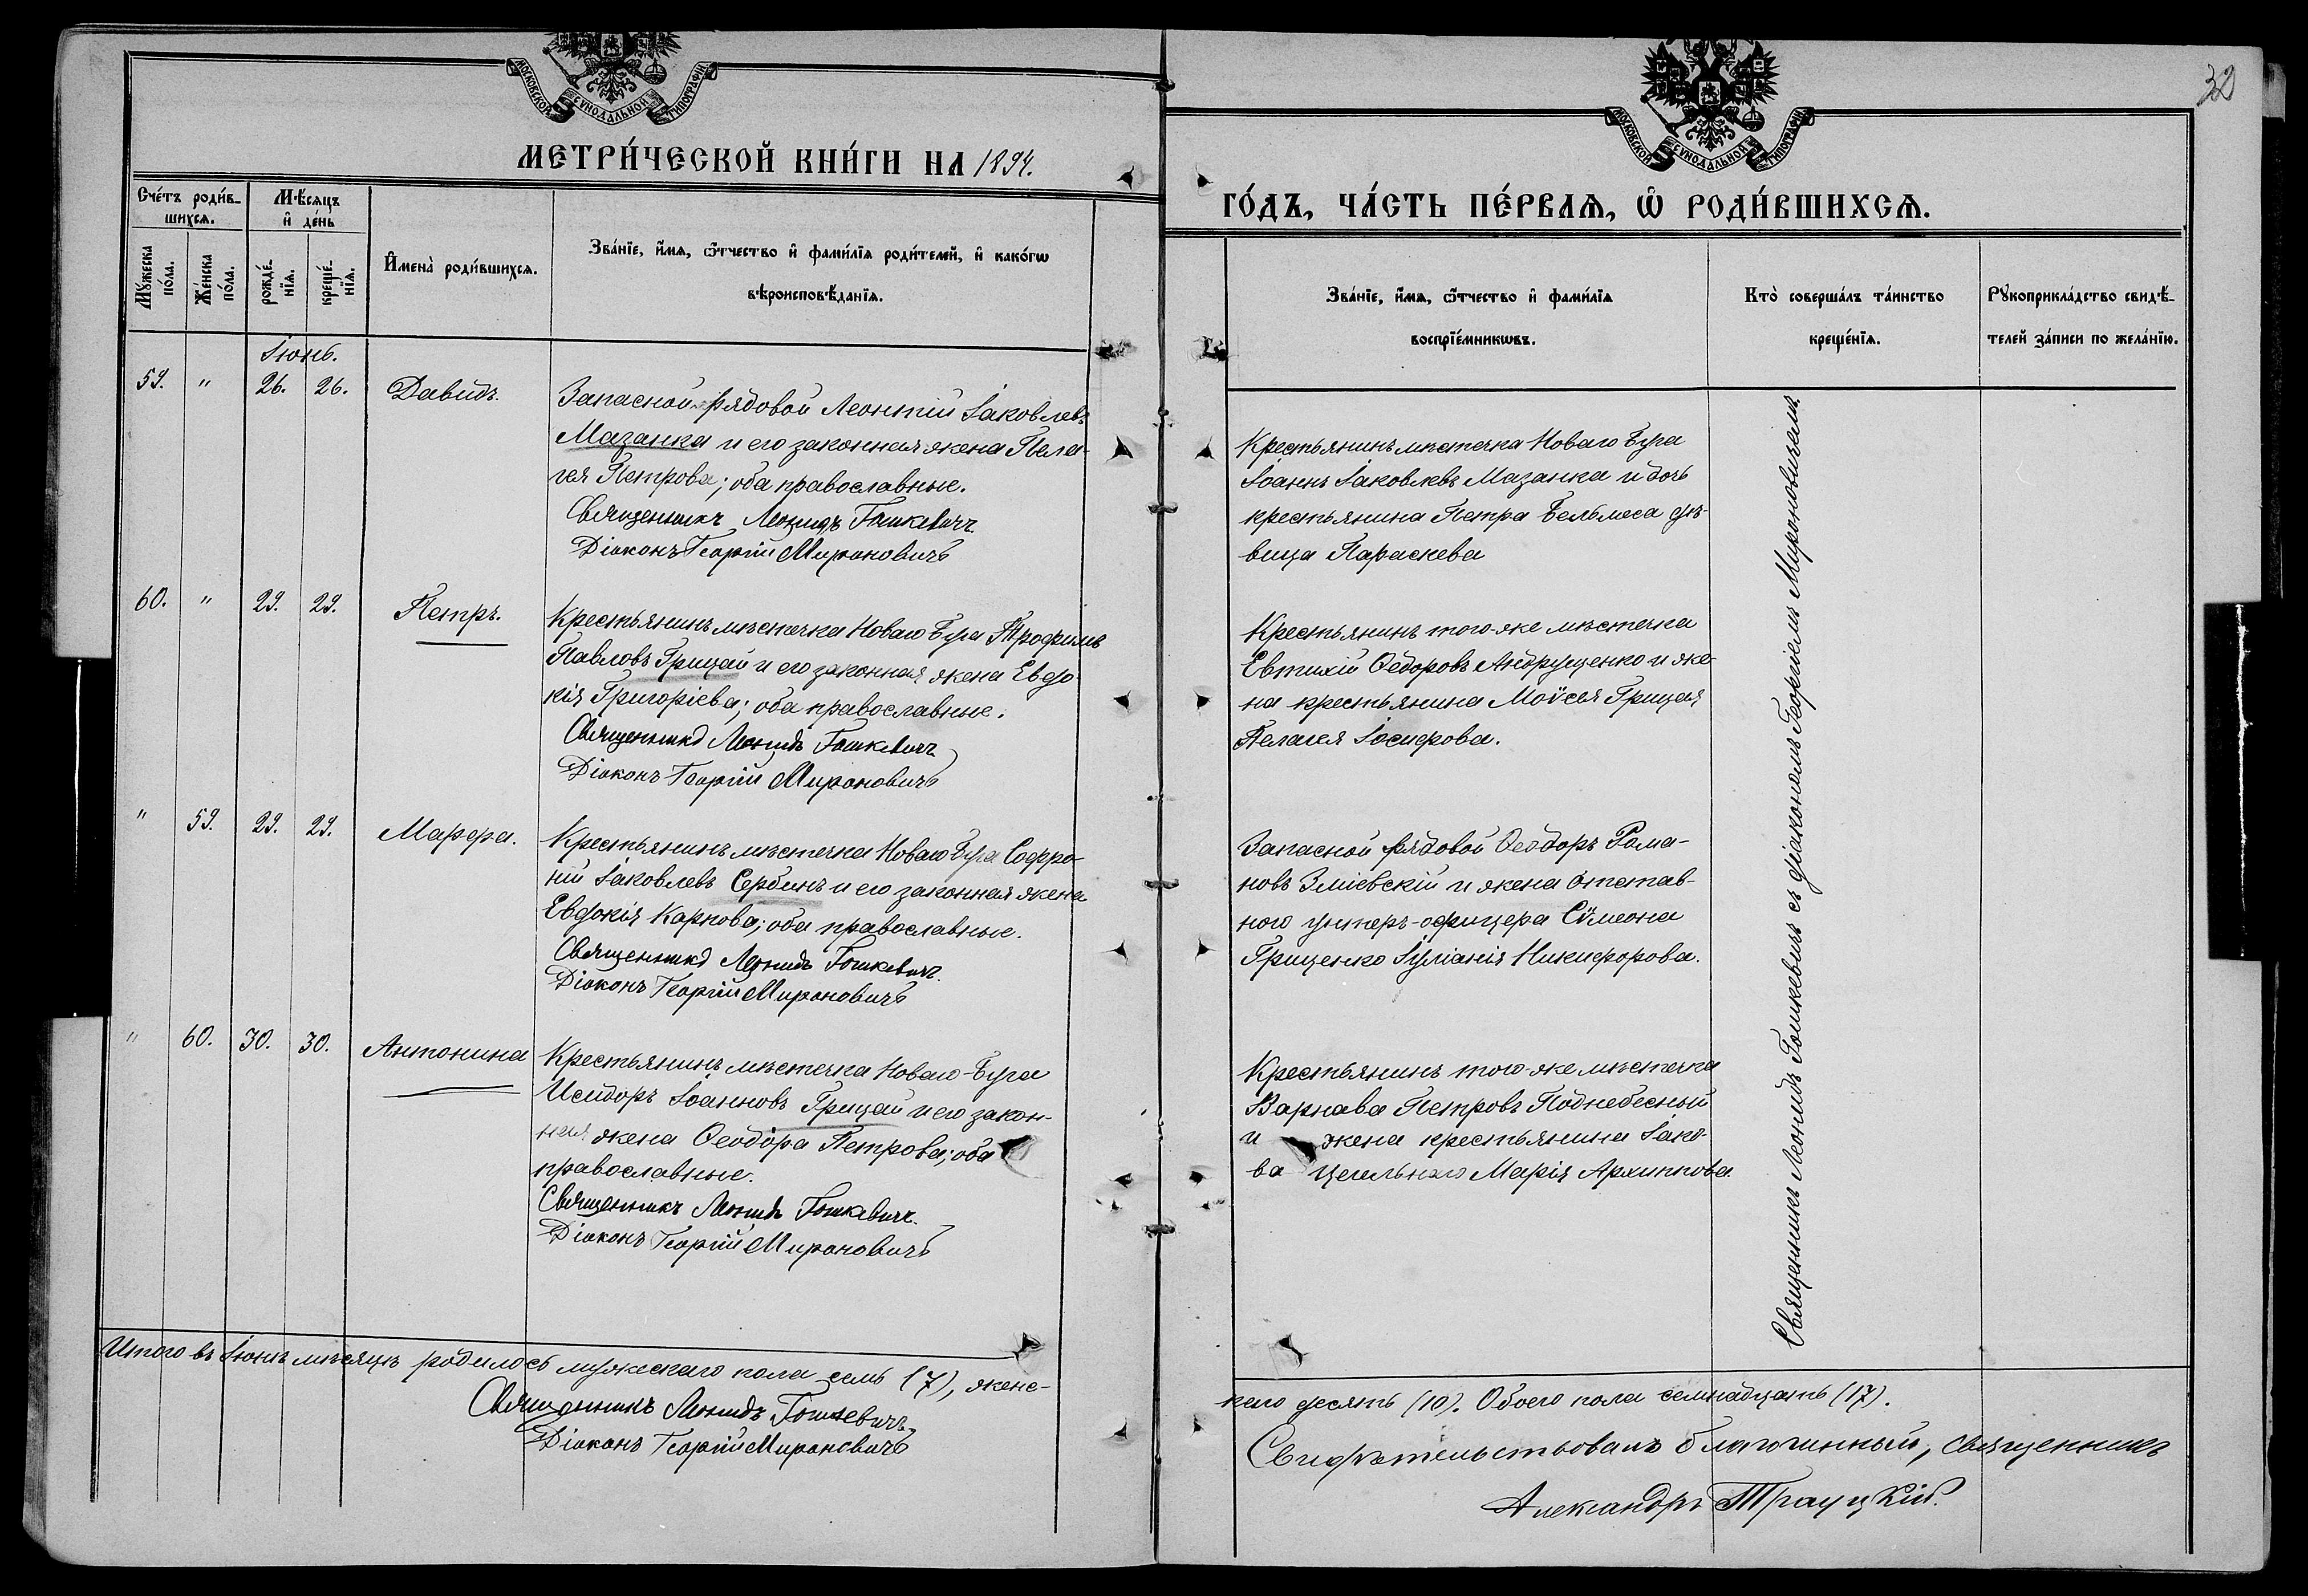 32
МОСКОВСКОЙ СѴНОДАЛЬНОЙ ТИПОГРАФІИ
МОСКОВСКОЙ СѴНОДАЛЬНОЙ ТИПОГРАФІИ
МЕТРИ́ЧЕСКОЙ КНИ́ГИ НА 1894.
ГО́ДЪ, ЧА́СТЬ ПЕ́РВАѦ, Ѡ҆ РОДИ́ВШИХСѦ.
Сче́тъ роди́в-
шихсѧ.
Мѣ́сѧцъ
и҆ де́нь
Мꙋ́жеска
по́ла.
Же́нска
по́ла.
рожде́-
нїѧ.
креще́-
нїѧ.
И҆мена̀ роди́вшихсѧ.
Зва́нїе, и҆́мѧ, ѻ҆́тчество и҆ фами́лїѧ роди́телей, и҆ како́гѡ
вѣроисповѣ́данїѧ.
Зва́нїе, и҆́мѧ, ѻ҆́тчество и҆ фами́лїѧ
воспрїе́мникѡвъ.
Кто̀ соверша́лъ та́инство
креще́нїѧ.
Рꙋкоприкла́дство свидѣ́-
телей за́писи по жела́нїю.
Іюнь.
59. " 26. 26. Давидъ.
Запасной рядовой Леонтій Іаковлевъ
Мазанка и его законная жена Пела-
гея Петрова; оба православные.
Священникъ Леонидъ Гошкевичъ
Діаконъ Георгій Мироновичъ
Крестьянинъ мѣстечка Новаго Буга
Іоаннъ Іаковлевъ Мазанка и дочь
крестьянина Петра Бельмеса дѣ-
вица Параскева
60. " 29. 29. Петръ.
Крестьянинъ мѣстечка Новаго Буга Трофимъ
Павловъ Грицай и его законная жена Евдо-
кія Григоріева; оба православные.
Священникъ Леонидъ Гошкевичъ
Діаконъ Георгій Мироновичъ
Крестьянинъ того-же мѣстечка
Евтихій Ѳедоровъ Андрущенко и же-
на крестьянина Моѵсея Грицая
Пелагея Іосифова.
" 59. 29. 29. Марфа.
Крестьянинъ мѣстечка Новаго Буга Софро-
ній Іаковлевъ Сербинъ и его законная жена
Евдокія Карпова; оба православные.
Священникъ Леонидъ Гошкевичъ
Діаконъ Георгій Мироновичъ
Запасной рядовой Ѳеодоръ Рома-
новъ Зміевскій и жена отстав-
ного унтеръ-офицера Сѵмеона
Гриценко Іуліанія Никифорова.
" 60. 30. 30. Антонина
Крестьянинъ мѣстечка Новаго-Буга
Исидоръ Іоанновъ Грицай и его закон-
ная жена Ѳеодора Петрова; оба
православные.
Священникъ Леонидъ Гошкевичъ.
Діаконъ Георгій Мироновичъ
Крестьянинъ того-же мѣстечка
Варнава Петровъ Поднебесный
и жена крестьянина Іако-
ва Цегельнаго Марія Архиппова.
Священникъ Леонидъ Гошкевичъ съ діакономъ Георгіемъ Мироновичемъ.
Итого въ Іюнѣ мѣсяцѣ родилось мужескаго пола семь (7), женс-
каго десять (10). Обоего пола семнадцать (17).
Священникъ Леонидъ Гошкевичъ
Діаконъ Георгій Мироновичъ
Свидѣтельствовалъ благочинный, священникъ
Александръ